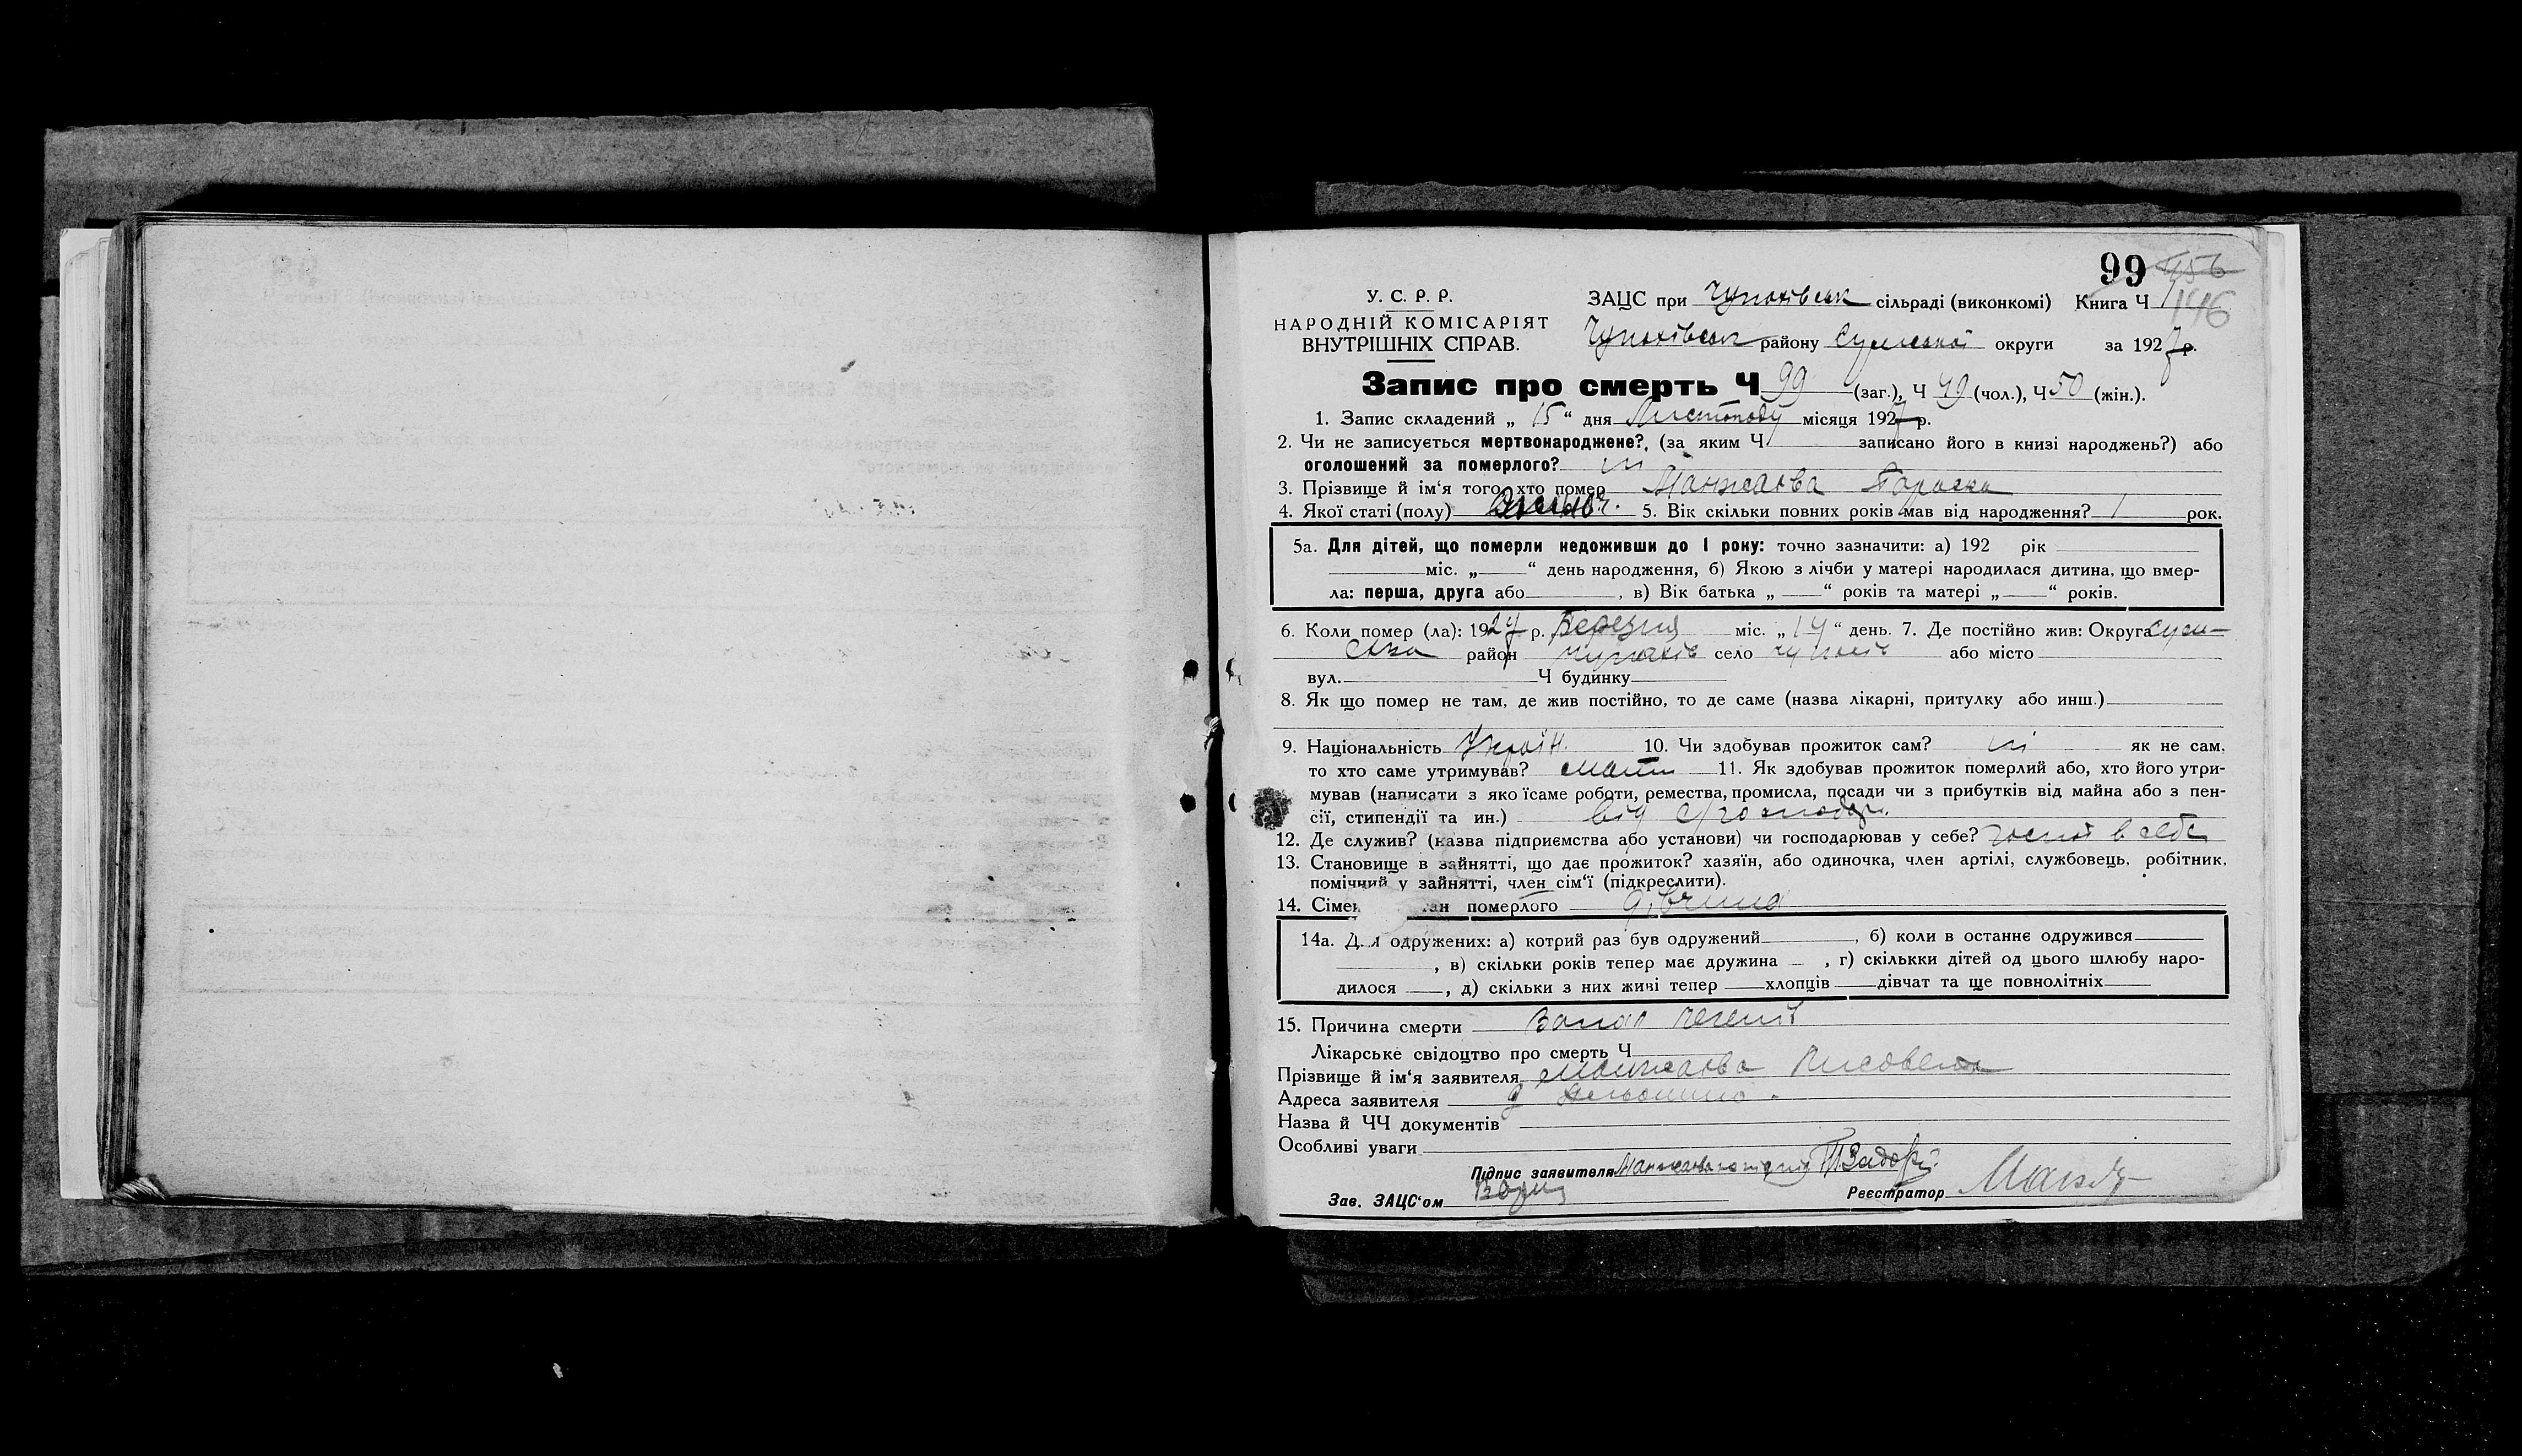 99 456
У. С. Р. Р.
НАРОДНІЙ КОМІСАРІЯТ
ВНУТРІШНІХ СПРАВ.
ЗАЦС при Чупахівськ сільраді (виконкомі) Книга Ч 146
Чупахівськ району Сумської округи за 1927 р.
Запис про смерть Ч 99 (заг.), Ч 49 (чол.), Ч 50 (жін.).
1. Запис складений „ 15 “ дня Листопаду місяця 1927 р.
2. Чи не записується мертвонароджене?, (за яким Ч записано його в книзі народжень?) або
оголошений за померлого? ні
3. Прізвище й ім‘я того, хто помер Манжаєва Параска
4. Якої статі (полу) 5. Вік скільки повних років мав від народження? 1 рок.
5а. Для дітей, що померли недоживши до 1 року: точно зазначити: а) 192 рік
міс. „ “ день народження, б) Якою з лічби у матері народилася дитина, що вмер-
ла: перша, друга або , в) Вік батька „ “ років та матері „ “ років.
6. Коли помер (ла): 192 р. Березня міс. „ 14 “ день. 7. Де постійно жив: Округа Сум-
ська район Чупахів село Чупахів або місто
вул. Ч будинку
8. Як що помер не там, де жив постійно, то де саме (назва лікарні, притулку або инш.)
9. Національність Україн. 10. Чи здобував прожиток сам? ні як не сам,
то хто саме утримував? мати 11. Як здобував прожиток померлий або, хто його утри-
мував (написати з яко їсаме роботи, ремества, промисла, посади чи з прибутків від майна або з пен-
сії, стипендії та ин.) від с/господар.
12. Де служив? (назва підприємства або установи) чи господарював у себе? в себе
13. Становище в зайнятті, що дає прожиток? хазяїн, або одиночка, член артілі, службовець, робітник,
помічний у зайнятті, член сім‘ї (підкреслити).
14. Сімен ан померлого дівчина
14а. Для одружених: а) котрий раз був одружений , б) коли в останнє одружився
, в) скільки років тепер має дружина — , г) скількки дітей од цього шлюбу наро-
дилося , д) скільки з них живі тепер хлопців дівчат та ще повнолітніх
15. Причина смерти Запал легенів
Лікарське свідоцтво про смерть Ч
Прізвище й ім‘я заявителя Манжаєва Лисовета
Адреса заявителя
Назва й ЧЧ документів
Особливі уваги
Підпис заявителя
Зав. ЗАЦС‘ом Реєстратор